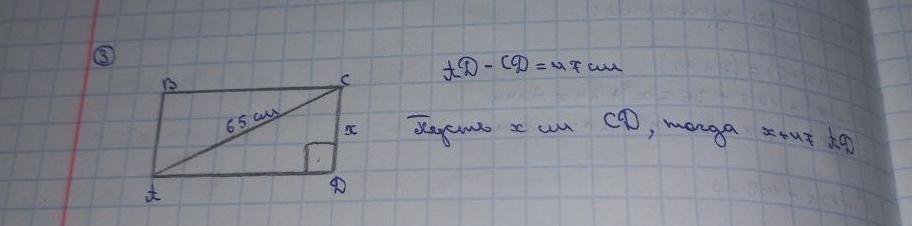 3
B C
AD - CD = 47 см
65 см
x
Пусть x см CD, тогда x+47 AD
A D